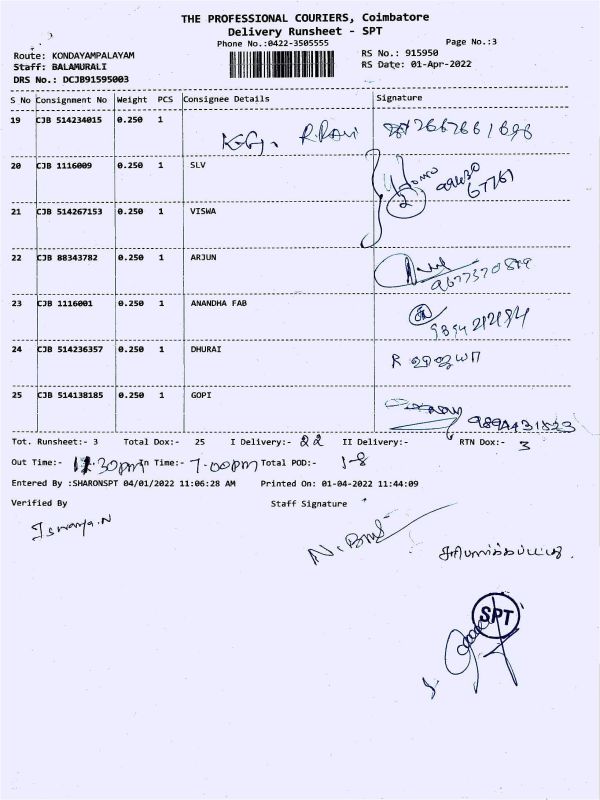 THE PROFESSIONAL COURIERS, Coimbatore
Delivery Runsheet - SPT
Phone No.:0422-3505555
Page No.:3
Route: KONDAYAMPALAYAM
RS No.: 915950
Staff: BALAMURALI
RS Date: 01-Apr-2022
DRS No.: DCJB91595003
S No Consignment No Weight PCS Consignee Details Signature
19 CJB 514234015 0.250 1 R.Ravi
20 CJB 1116009 0.250 1 SLV
21 CJB 514267153 0.250 1 VISWA
22 CJB 88343782 0.250 1 ARJUN
23 CJB 1116001 0.250 1 ANANDHA FAB
24 CJB 514236357 0.250 1 DHURAI R
25 CJB 514138185 0.250 1 GOPI 9894431823
Tot. Runsheet:- 3 Total Dox:- 25 I Delivery:- 22 II Delivery:- RTN Dox:- 3
Out Time:- 11.30pm In Time:- 7.00pm Total POD:- 1-8
Entered By :SHARONSPT 04/01/2022 11:06:28 AM Printed On: 01-04-2022 11:44:09
Verified By Staff Signature
Iswarya.N
சரிபார்க்கப்பட்டது.
SPT